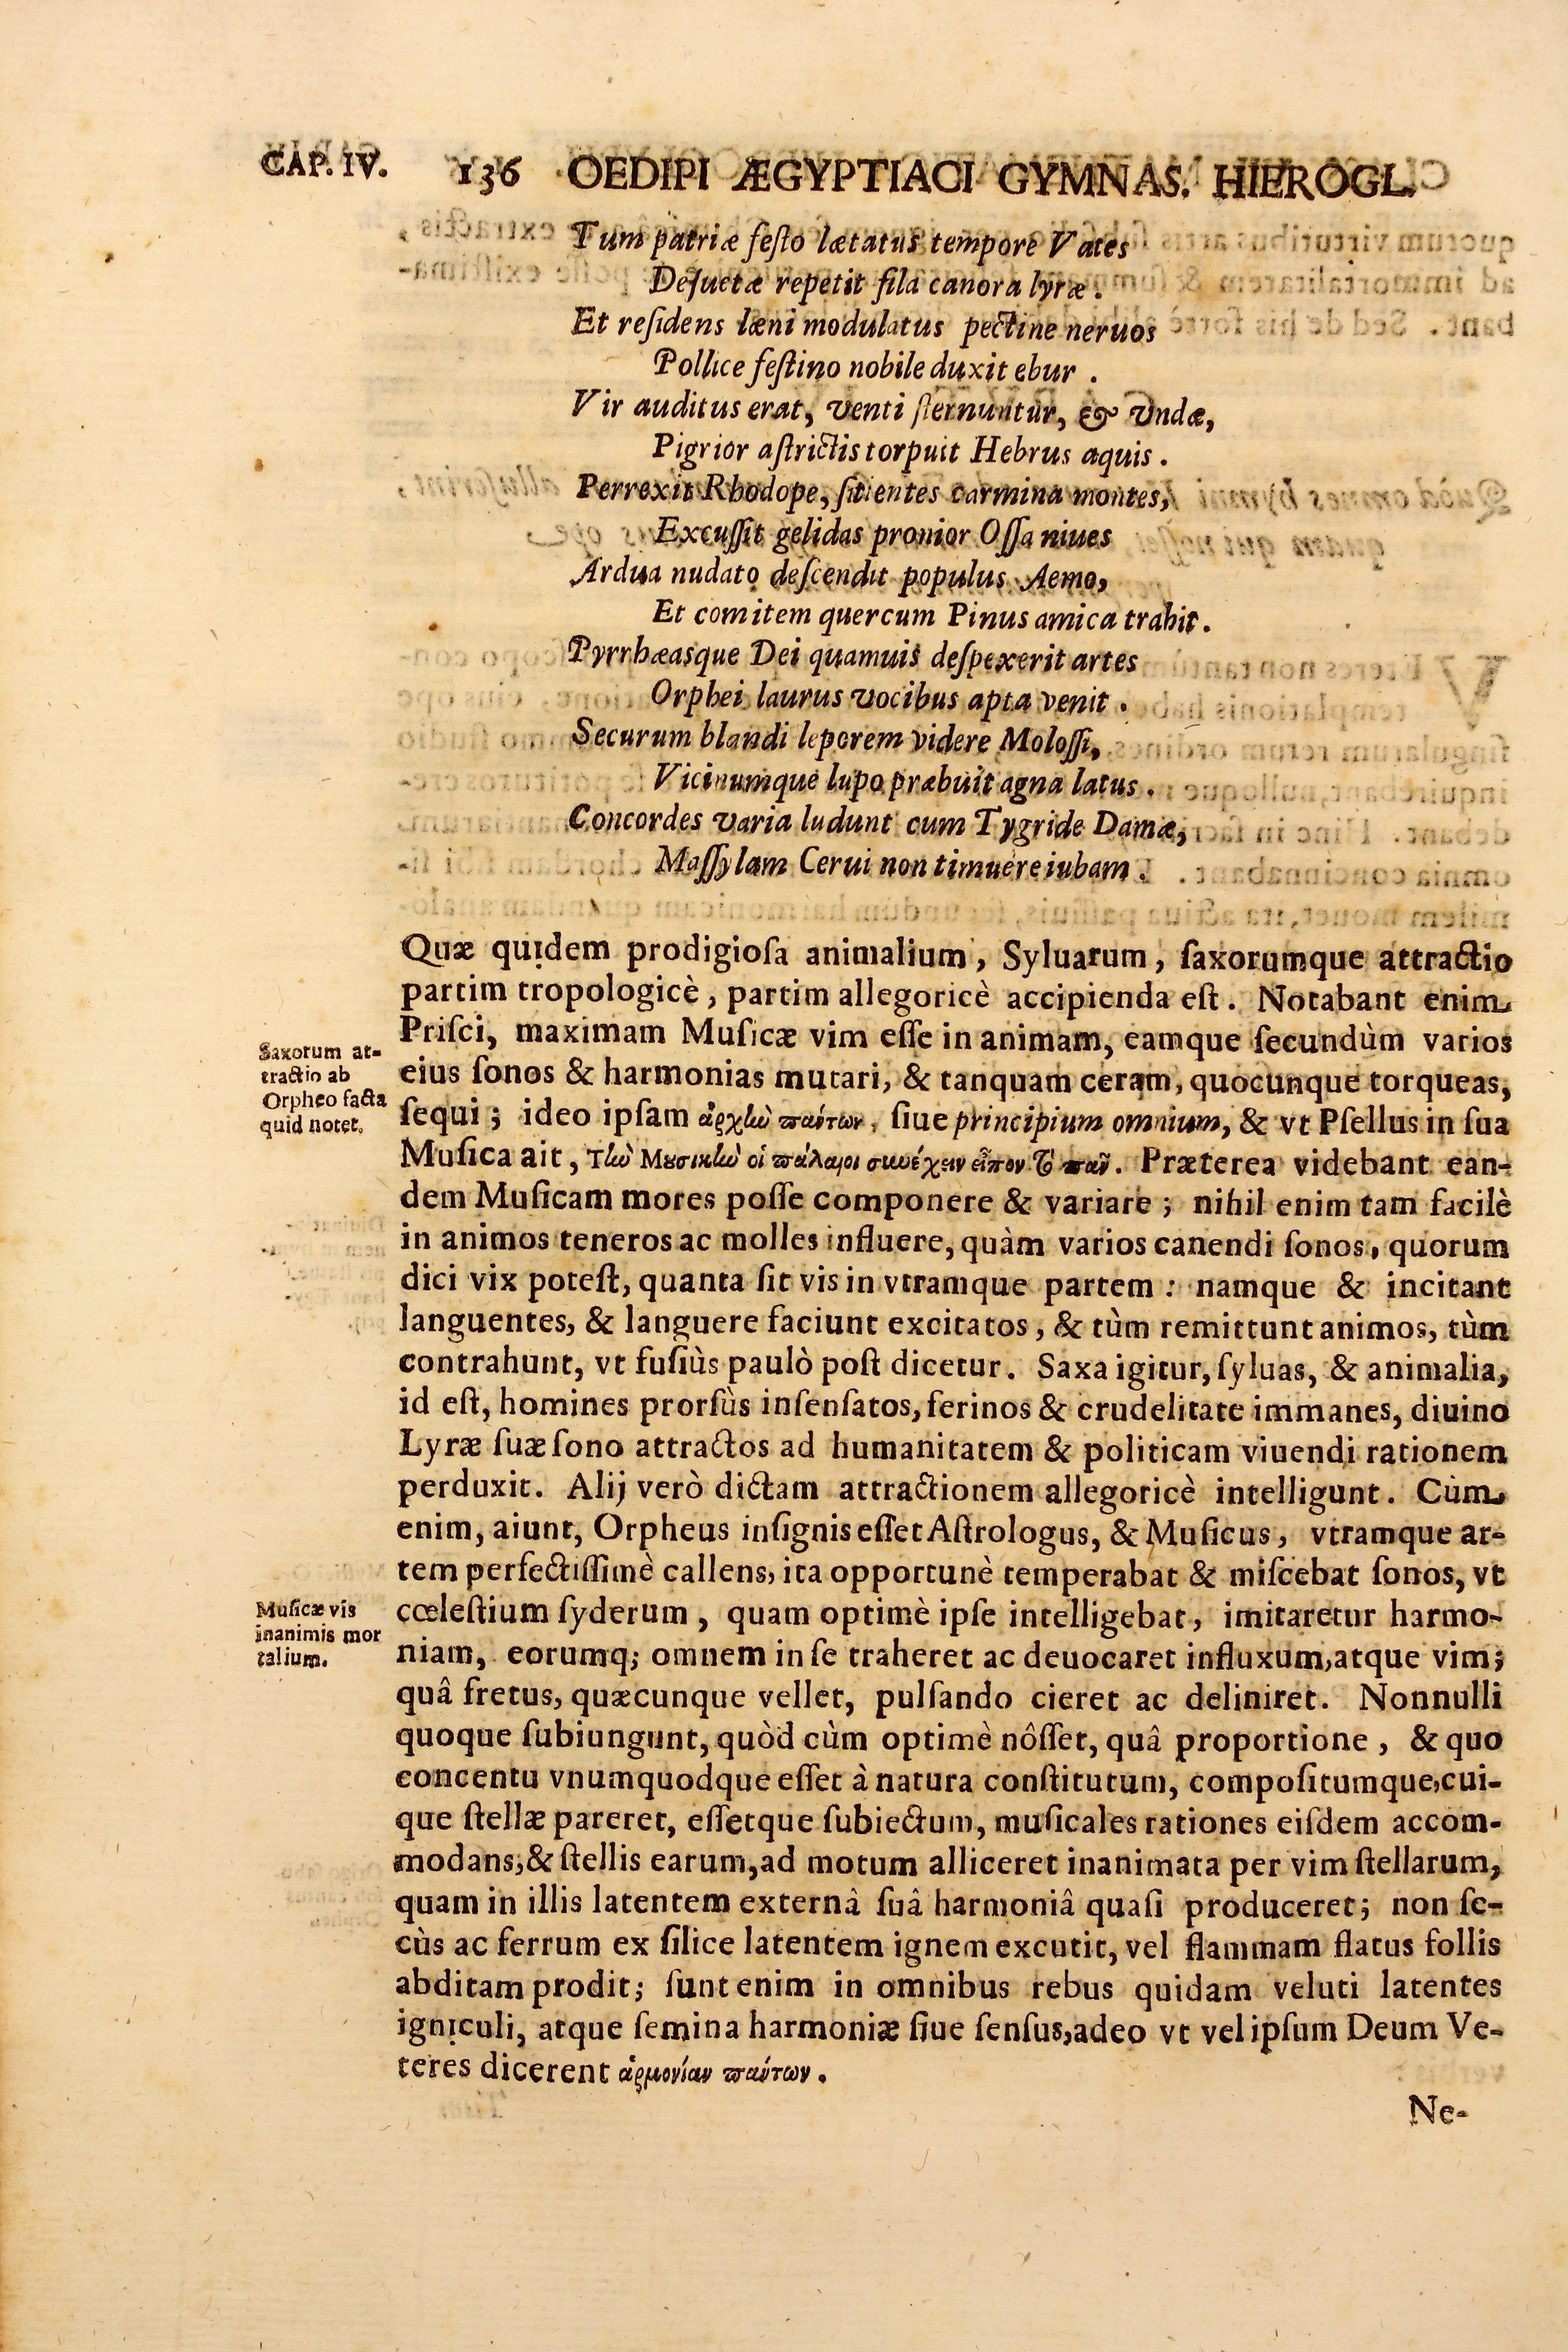 CAP. IV. 136 OEDIPI ÆGYPTIACI GYMNAS. HIEROGL.
Tum patriæ feſto lætatus tempore Vates
Deſuetæ repetit fila canora lyræ.
Et reſidens læni modulatus pectine neruos
Pollice feſtino nobile duxit ebur.
Vir auditus erat, venti ſternuntur, & vndæ,
Pigrior aſtrictis torpuit Hebrus aquis.
Perrexit Rhodope, ſitientes carmina montes,
Excuſſit gelidas pronior Oſſa niues
Ardua nudato deſcendit populus Aemo,
Et comitem quercum Pinus amica trahit.
Pyrrhæasque Dei quamuis deſpexerit artes
Orphei laurus vocibus apta venit.
Securum blandi leporem videre Moloſſi,
Vicinumque lupo præbuit agna latus.
Concordes varia ludunt cum Tygride Damæ,
Maſſylam Cerui non timuere iubam.
Quæ quidem prodigioſa animalium, Syluarum, ſaxorumque attractio
partim tropologicè, partim allegoricè accipienda eſt. Notabant enim
Priſci, maximam Muſicæ vim eſſe in animam, eamque ſecundùm varios
eius ſonos & harmonias mutari, & tanquam ceram, quocunque torqueas,
ſequi; ideo ipſam ἀρχὴν πάντων, ſiue principium omnium, & vt Pſellus in ſua
Muſica ait, Τὴν Μȣσικὴν οἱ πάλαιοι συνέχειν εἶπον τὸ πᾶν. Præterea videbant ean-
dem Muſicam mores poſſe componere & variare; nihil enim tam facilè
in animos teneros ac molles influere, quàm varios canendi ſonos, quorum
dici vix poteſt, quanta ſit vis in vtramque partem: namque & incitant
languentes, & languere faciunt excitatos, & tùm remittunt animos, tùm
contrahunt, vt fuſiùs paulò poſt dicetur. Saxa igitur, ſyluas, & animalia,
id eſt, homines prorſùs inſenſatos, ferinos & crudelitate immanes, diuino
Lyræ ſuæ ſono attractos ad humanitatem & politicam viuendi rationem
perduxit. Alij verò dictam attractionem allegoricè intelligunt. Cùm
enim, aiunt, Orpheus inſignis eſſet Aſtrologus, & Muſicus, vtramque ar-
tem perfectiſſimè callens, ita opportunè temperabat & miſcebat ſonos, vt
cœleſtium ſyderum, quam optimè ipſe intelligebat, imitaretur harmo-
niam, eorumq; omnem in ſe traheret ac deuocaret influxum, atque vim;
quâ fretus, quæcunque vellet, pulſando cieret ac deliniret. Nonnulli
quoque ſubiungunt, quòd cùm optimè nôſſet, quâ proportione, & quo
concentu vnumquodque eſſet à natura conſtitutum, compoſitumque, cui-
que ſtellæ pareret, eſſetque ſubiectum, muſicales rationes eiſdem accom-
modans, & ſtellis earum, ad motum alliceret inanimata per vim ſtellarum,
quam in illis latentem externâ ſuâ harmoniâ quaſi produceret; non ſe-
cùs ac ferrum ex ſilice latentem ignem excutit, vel flammam flatus follis
abditam prodit; ſunt enim in omnibus rebus quidam veluti latentes
igniculi, atque ſemina harmoniæ ſiue ſenſus, adeo vt vel ipſum Deum Ve-
teres dicerent ἁρμονίαν πάντων.
Ne-
Saxorum at-
tractio ab
Orpheo facta
quid notet.
Muſicæ vis
inanimis mor
talium.